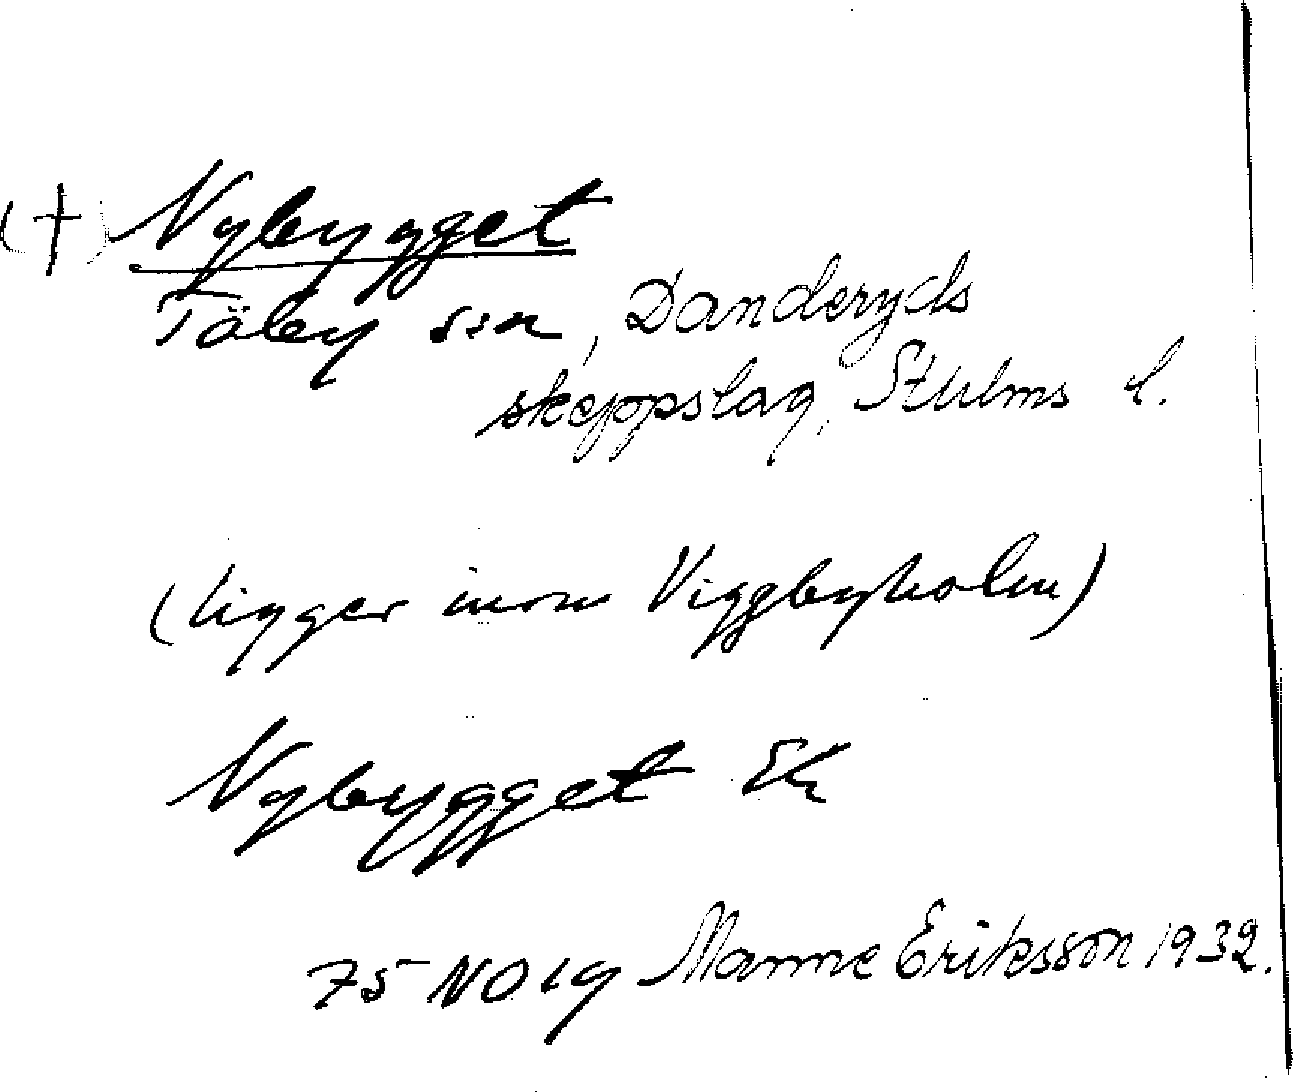 (†) Nybygget
Täby sn, Danderyds
skeppslag, Sthlms l.
(ligger inom Viggbyholm)
Nybygget Ek
75 NO 19 Manne Eriksson 1932.